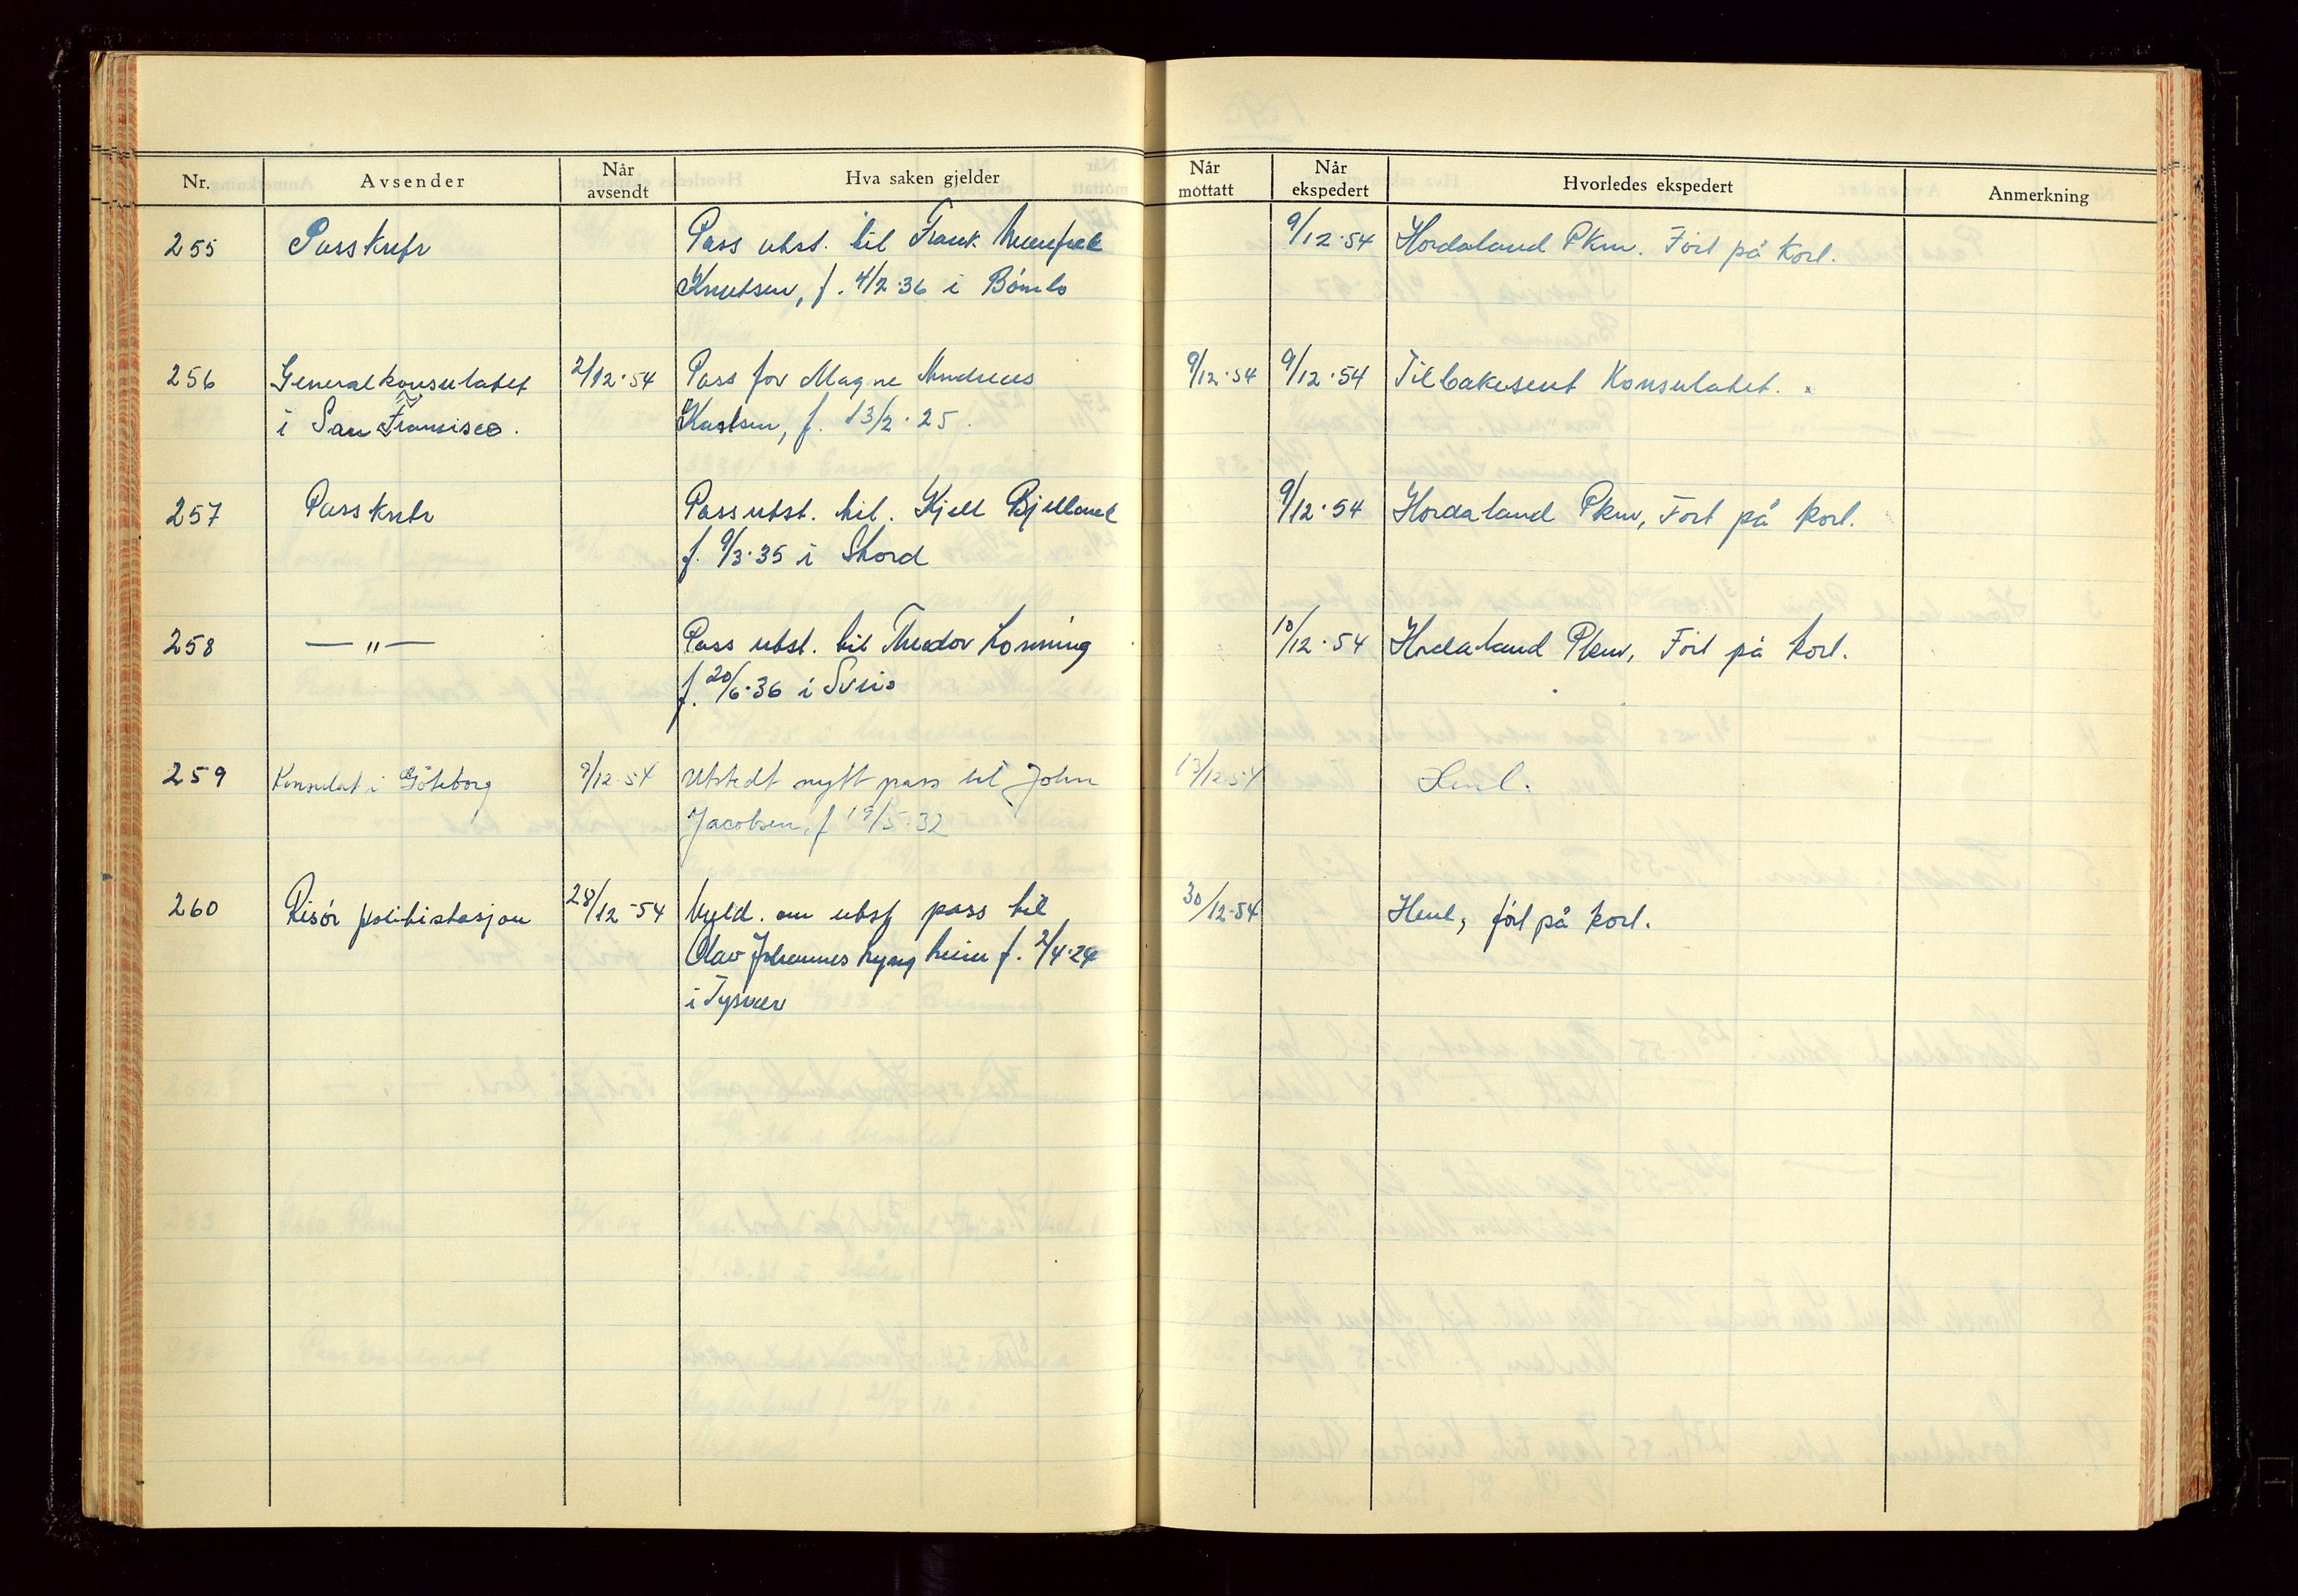 Nr. Avsender Når avsendt Hva saken gjelder Når mottatt Når ekspedert Hvorledes ekspedert Anmerkning
255 Passkntr Pass utst. til Frank 9/12.54 Hordaland Pkm. Ført på kort.
Knutsen, f. 4/2.36 i Bømlo
256 Generalkonsulatet 2/12.54 Pass for Magne Andreas 9/12.54 9/12.54 Tilbakesent Konsulatet.
i San Francisco. f. 13/2.25.
257 Passkntr Pass utst. til. Kjell Bjelland 9/12.54 Hordaland Pkm, Ført på kort.
f. 9/3.35 i Stord
258 — " — Pass utst. til Theodor Lønning 10/12.54 Hordaland Pkm, Ført på kort.
f. 20/6.36 i Sveio
259 Konsulat i Göteborg 9/12.54 Utstedt nytt pass til John 13/12.54 Henl.
Jacobsen, f 19/5.32
260 Risør politistasjon 28/12-54 Meld. om utst pass til 30/12-54 Henl, ført på kort.
Olav Johannes f. 2/4.24
i Tysvær